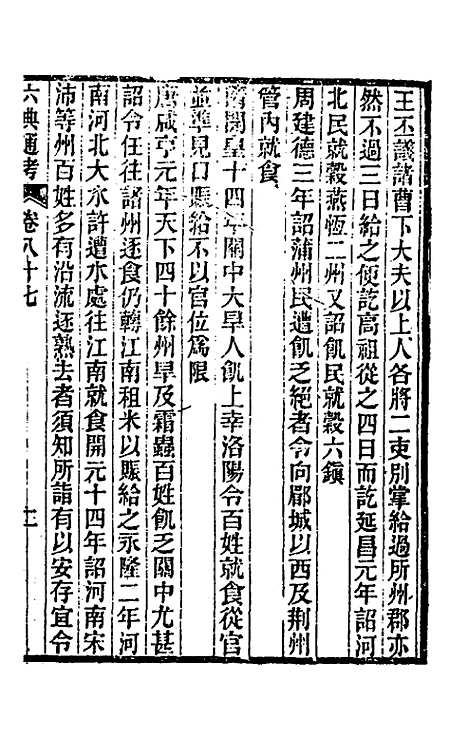 王丕議諸曹下大夫以上人各將二吏別掌給過所州郡亦
然不過三日給之便訖高祖從之四日而訖延昌元年詔河
北民就穀燕恆二州又詔飢民就穀六鎮
周建德三年詔蒲州民遭飢乏絕者令向郿城以西及荆州
管內就食
隋開皇十四年關中大旱人飢上幸洛陽令百姓就食從官
並準見口賑給不以官位爲限
唐咸亨元年天下四十餘州旱及霜蟲百姓飢乏關中尤甚
詔令任往諸州逐食仍轉江南租米以賑給之永隆二年河
南河北大水許遭水處往江南就食開元十四年詔河南宋
沛等州百姓多有沿流逐熟去者須知所詣有以安存宜令
六典通考 卷八十七